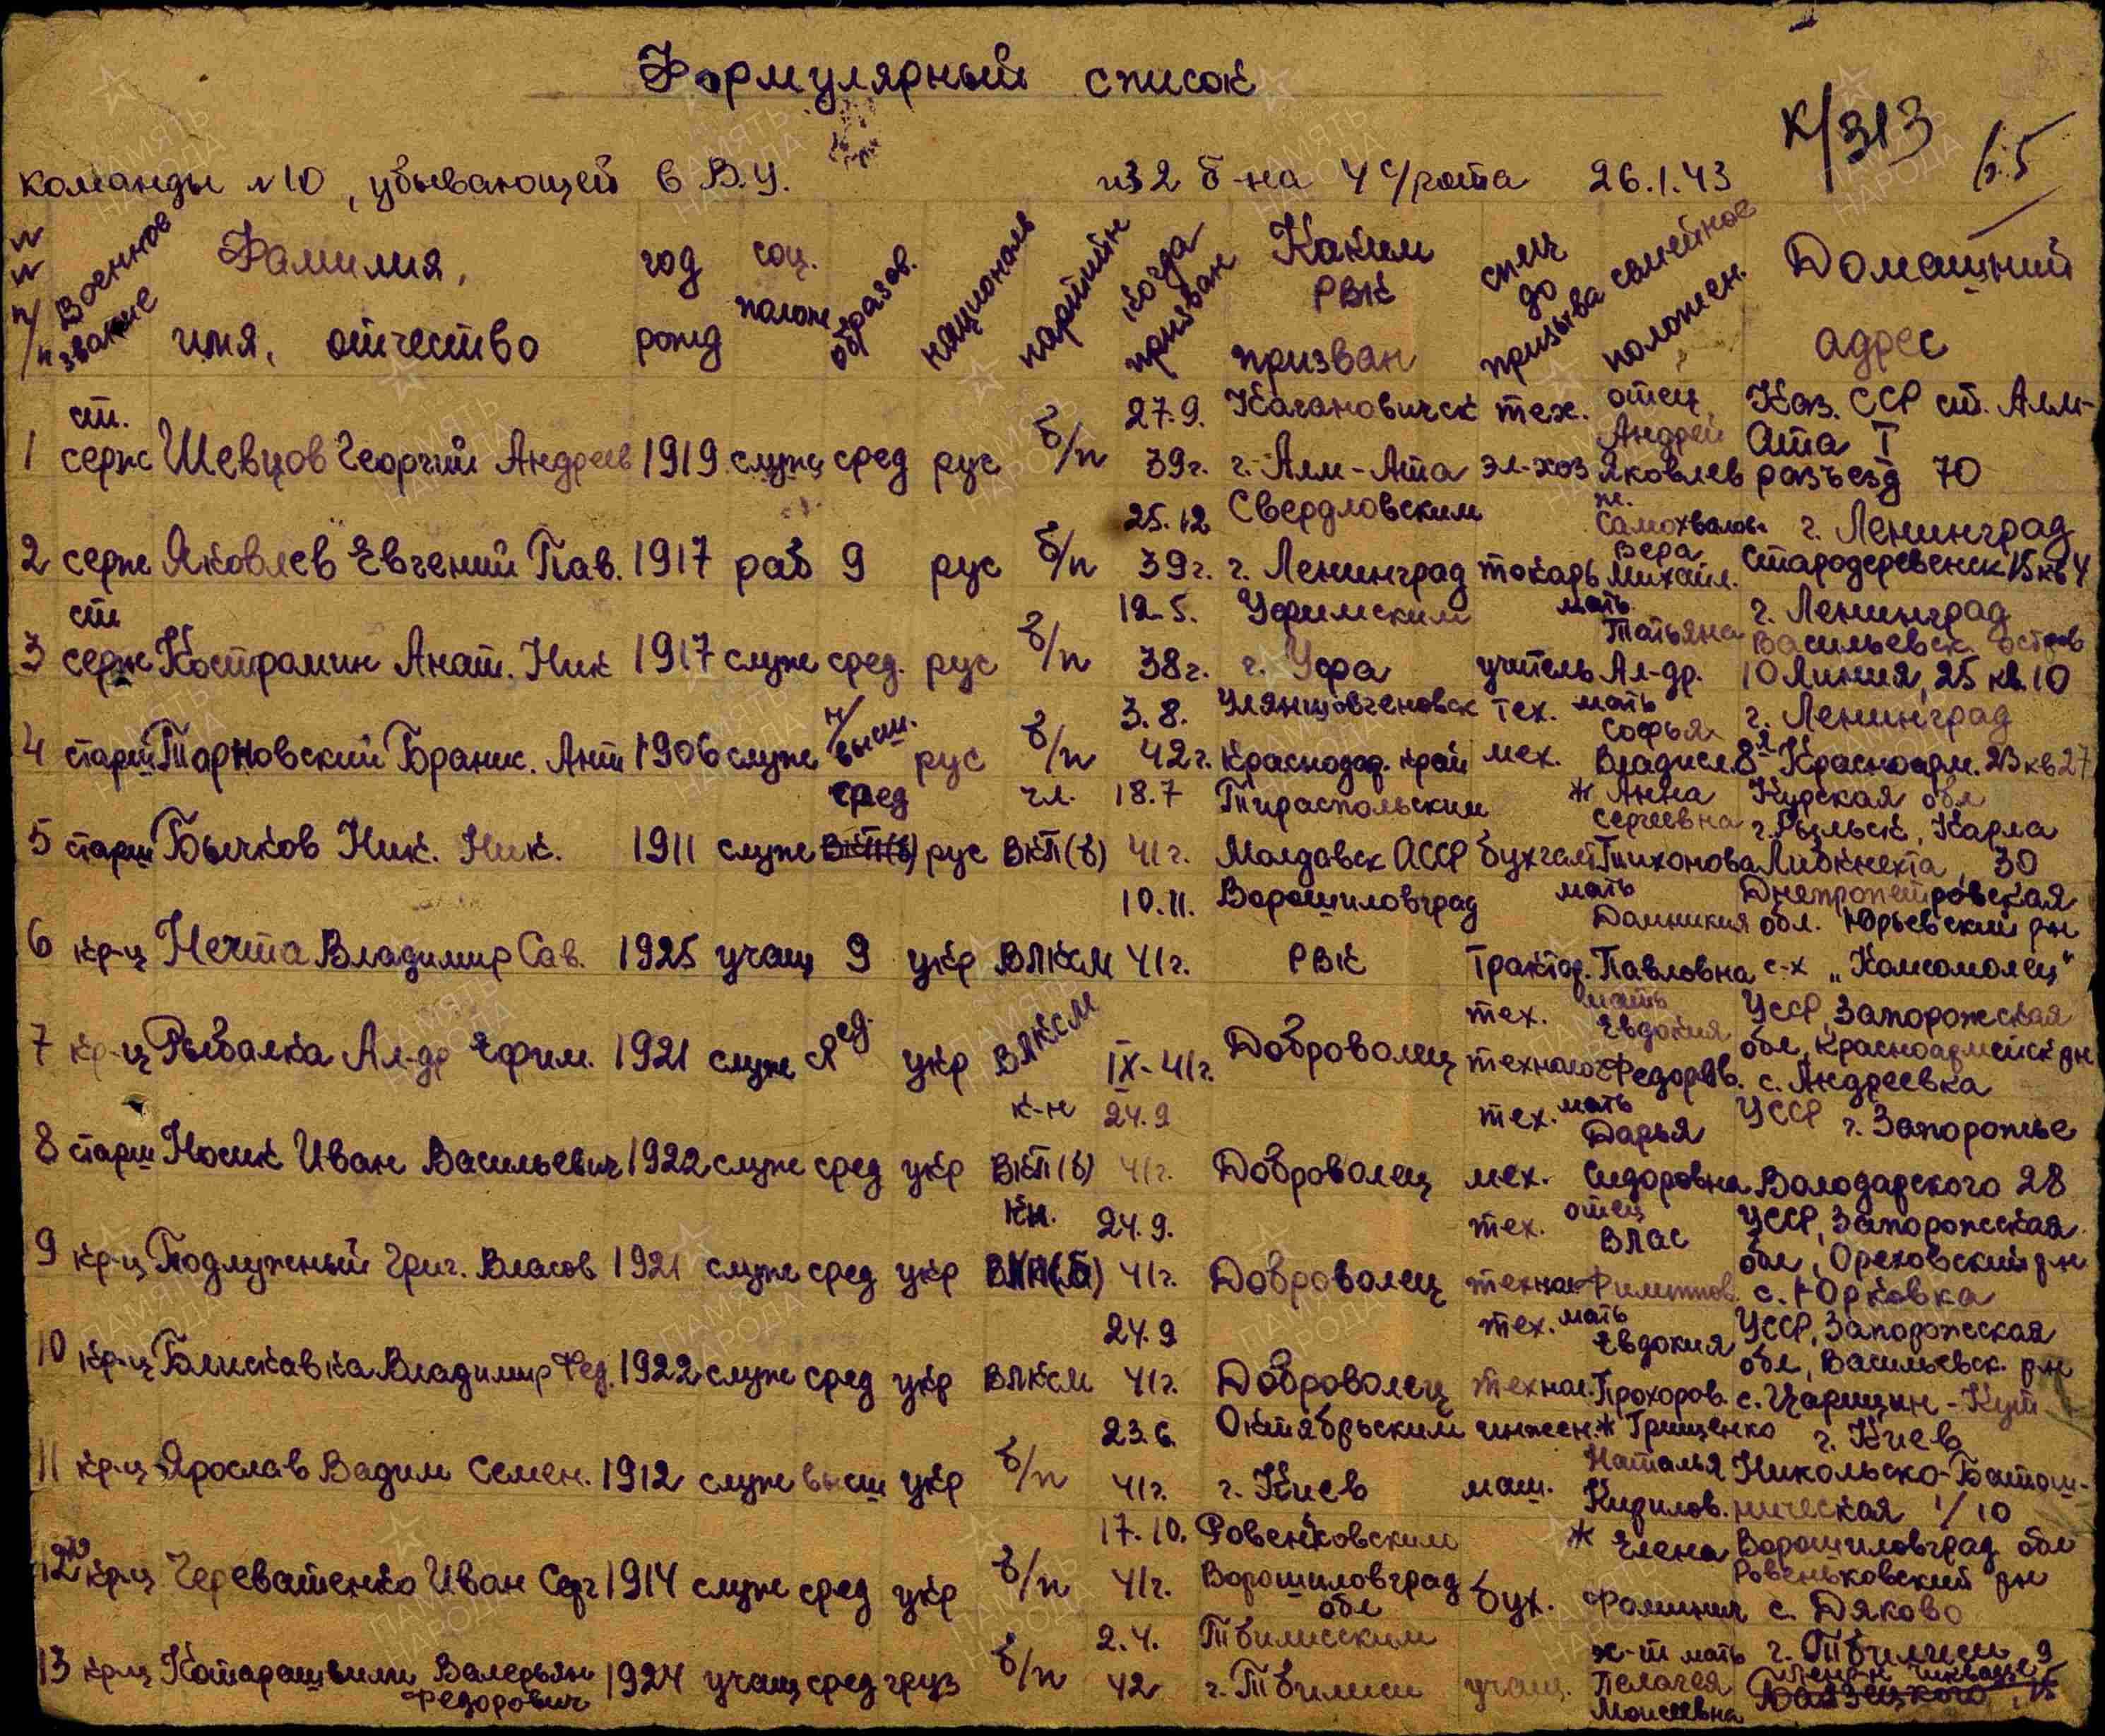 Формулярный список
К/313
команды №10, убывающей в В.У. из 2 б-на 4 с/рота 26.1.43
№ № п/п Военное звание Фамилия, имя, отчество год рожд соц. полож образов. националь партийн когда призван Каким РВК призван спец до призыва семейное положен. Домашний адрес
1 ст. серж Шевцов Георгий Андреев 1919 служ сред рус б/п 27.9. 39г. Кагановичск г. Алм-Ата тех. эл-хоз отец Андрей Яковлев Каз. ССР ст. Алм-Ата I разъезд 70
2 серж Яковлев Евгений Пав. 1917 раб 9 рус б/п 25.12 39г. Свердловским г. Ленинград токарь ж. Самохвалов Вера Михайл. г. Ленинград Стародеревенск 15 кв 4
3 ст серж Костромин Анат. Ник 1917 служ сред. рус б/п 12.5. 38г. Уфимским г. Уфа учитель мать Татьяна Ал-др. г. Ленинград Васильевск. остров 10 Линия, 25 кв. 10
4 старш Тарновский Браник. Ант 1906 служ н/высш. рус б/п 3.8. 42г. Краснодар. край тех. мех. мать Софья Владисл. г. Ленинград 8я Красноарм. 23 кв 27
5 старш Бычков Ник. Ник. 1911 служ сред ВКП(б) рус чл. ВКП(б) 18.7 41г. Тираспольским Молдавск АССР бухгалт ж Анна Сергеевна Тихонова Курская обл г. Рыльск, Карла Либкнехта, 30
6 кр-ц Нечта Владимир Сав. 1925 учащ 9 укр ВЛКСМ 10.11. 41г. Ворошиловград РВК трактор. мать Домникия Павловна Днепропетровская обл. Юрьевский рн с-х „Комсомолец"
7 кр-ц Рыбалка Ал-др Ефим. 1921 служ укр ВЛКСМ IX-41г. Доброволец тех. технолог мать Евдокия Федоров. УССР, Запорожская обл, Красноармейск рн с. Андреевка
8 старш Носик Иван Васильевич 1922 служ сред укр к-н ВКП(б) 24.9 41г. Доброволец тех. мех. мать Дарья Сидоровна УССР г. Запорожье Володарского 28
9 кр-ц Подлужный Григ. Власов 1921 служ сред укр кн. ВКП(б) 24.9. 41г. Доброволец тех. технол отец Влас УССР, Запорожская обл, Ореховский рн с. Юрковка
10 кр-ц Блискавка Владимир Фед. 1922 служ сред укр ВЛКСМ 24.9 41г. Доброволец тех. технол. мать Евдокия Прохоров. УССР, Запорожская обл, Васильевск. рн с. Царицын-Кут
11 кр-ц Ярослав Вадим Семен. 1912 служ высш укр б/п 23.6. 41г. Октябрьским г. Киев инжен. маш. ж Грищенко Наталья Кирилов. г. Киев Никольско-Ботаническая 1/10
12 кр-ц Череватенко Иван Серг 1914 служ сред укр б/п 17.10. 41г. Ровеньковским Ворошиловград обл бух. ж Елена Фоминич Ворошиловград обл Ровеньковский рн с. Дяково
13 кр-ц Котарашвили Валерьян Федорович 1924 учащ сред груз б/п 2.4. 42 Тбилисским г. Тбилиси учащ. х-т мать Пелагея Моисеевна г. Тбилиси